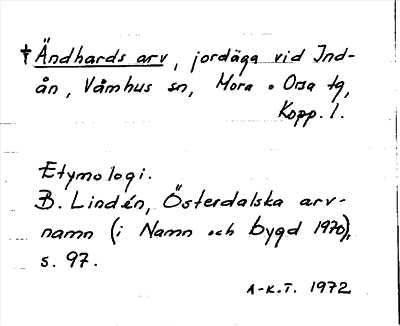 † Ändhards arv, jordäga vid Ind-
ån, Våmhus sn, Mora o Orsa tg,
Kopp. l.
Etymologi.
B. Lindén, Österdalska arv-
namn (i Namn och bygd 1970),
s. 97.
A-K.T. 1972